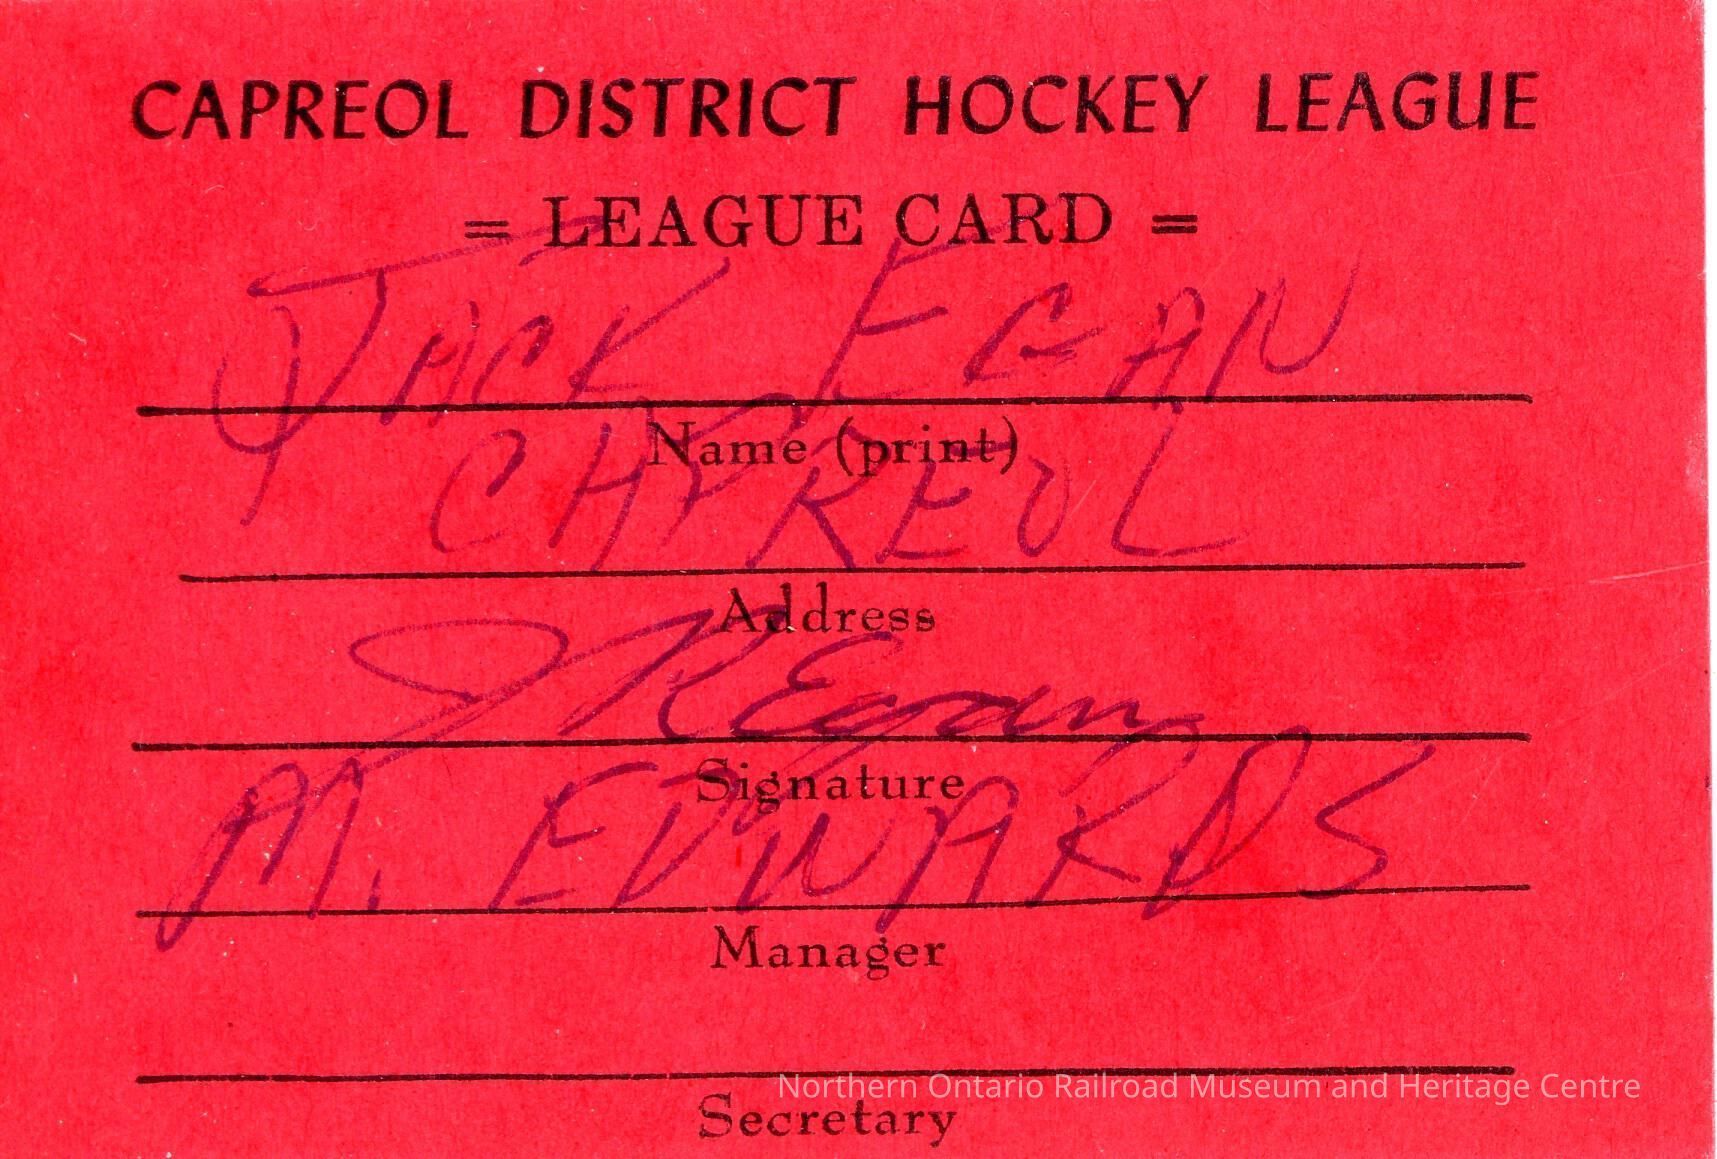 CAPREOL DISTRICT HOCKEY LEAGUE
= LEAGUE CARD =
JACK EGAN
Name (print)
CAPREOL
Address
JR Egan
Signature
M. EDWARDS
Manager
Northern Ontario Railroad Museum and Heritage Centre
Secretary